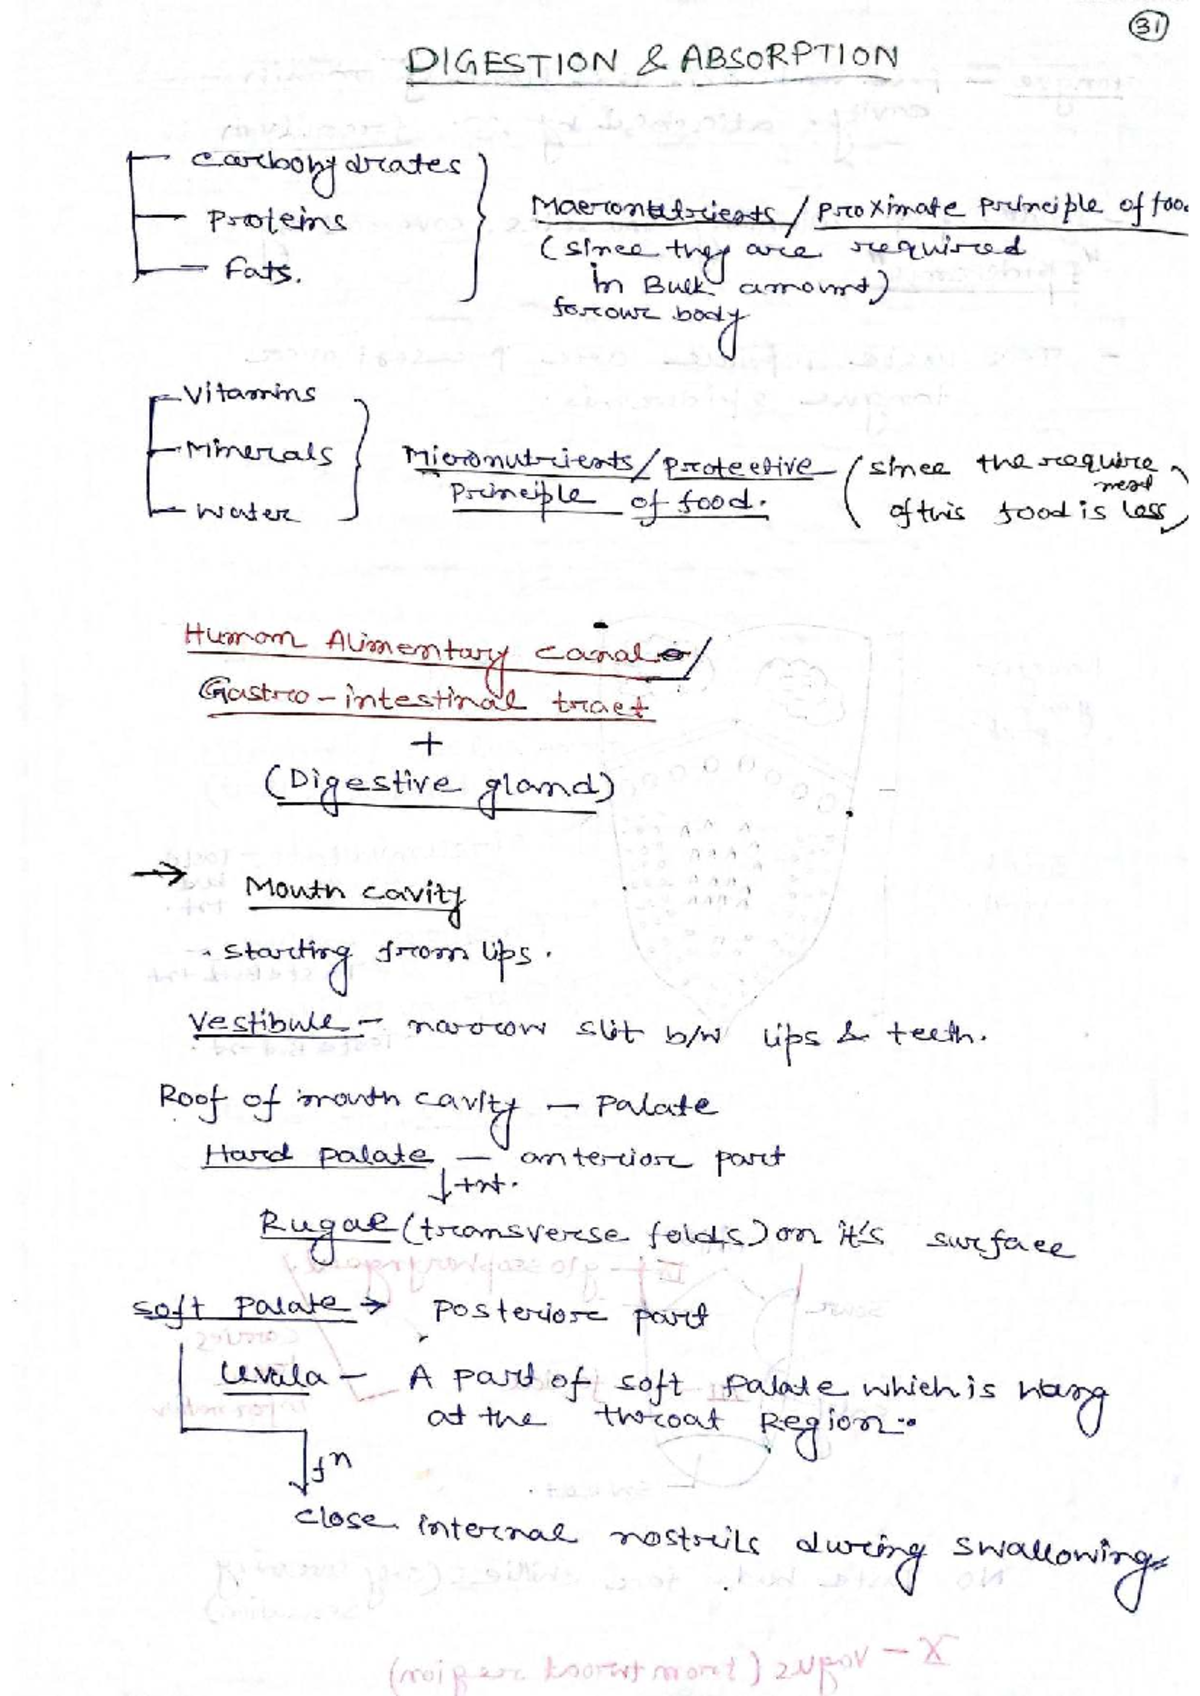 31
DIGESTION & ABSORPTION
Carbohydrates
Proteins
Fats.
Macronutrients / Proximate Principle of food
(since they are required
in Bulk amount)
for our body
Vitamins
Minerals
Water
Micronutrients / Protective
Principle of food.
(since the require
ment
of this food is less)
Human Alimentary canal /
Gastro-intestinal tract
+
(Digestive gland)
→ Mouth cavity
. starting from lips.
Vestibule - narrow slit b/w lips & teeth.
Roof of mouth cavity - Palate
Hard palate - anterior part
↓ +nt.
Rugae (transverse folds) on it's surface
Soft Palate → Posterior part
Uvula - A part of soft Palate which is Hang
at the throat Region.
↓ fn
close internal nostrils during swallowing
X - vagus (from throat region)